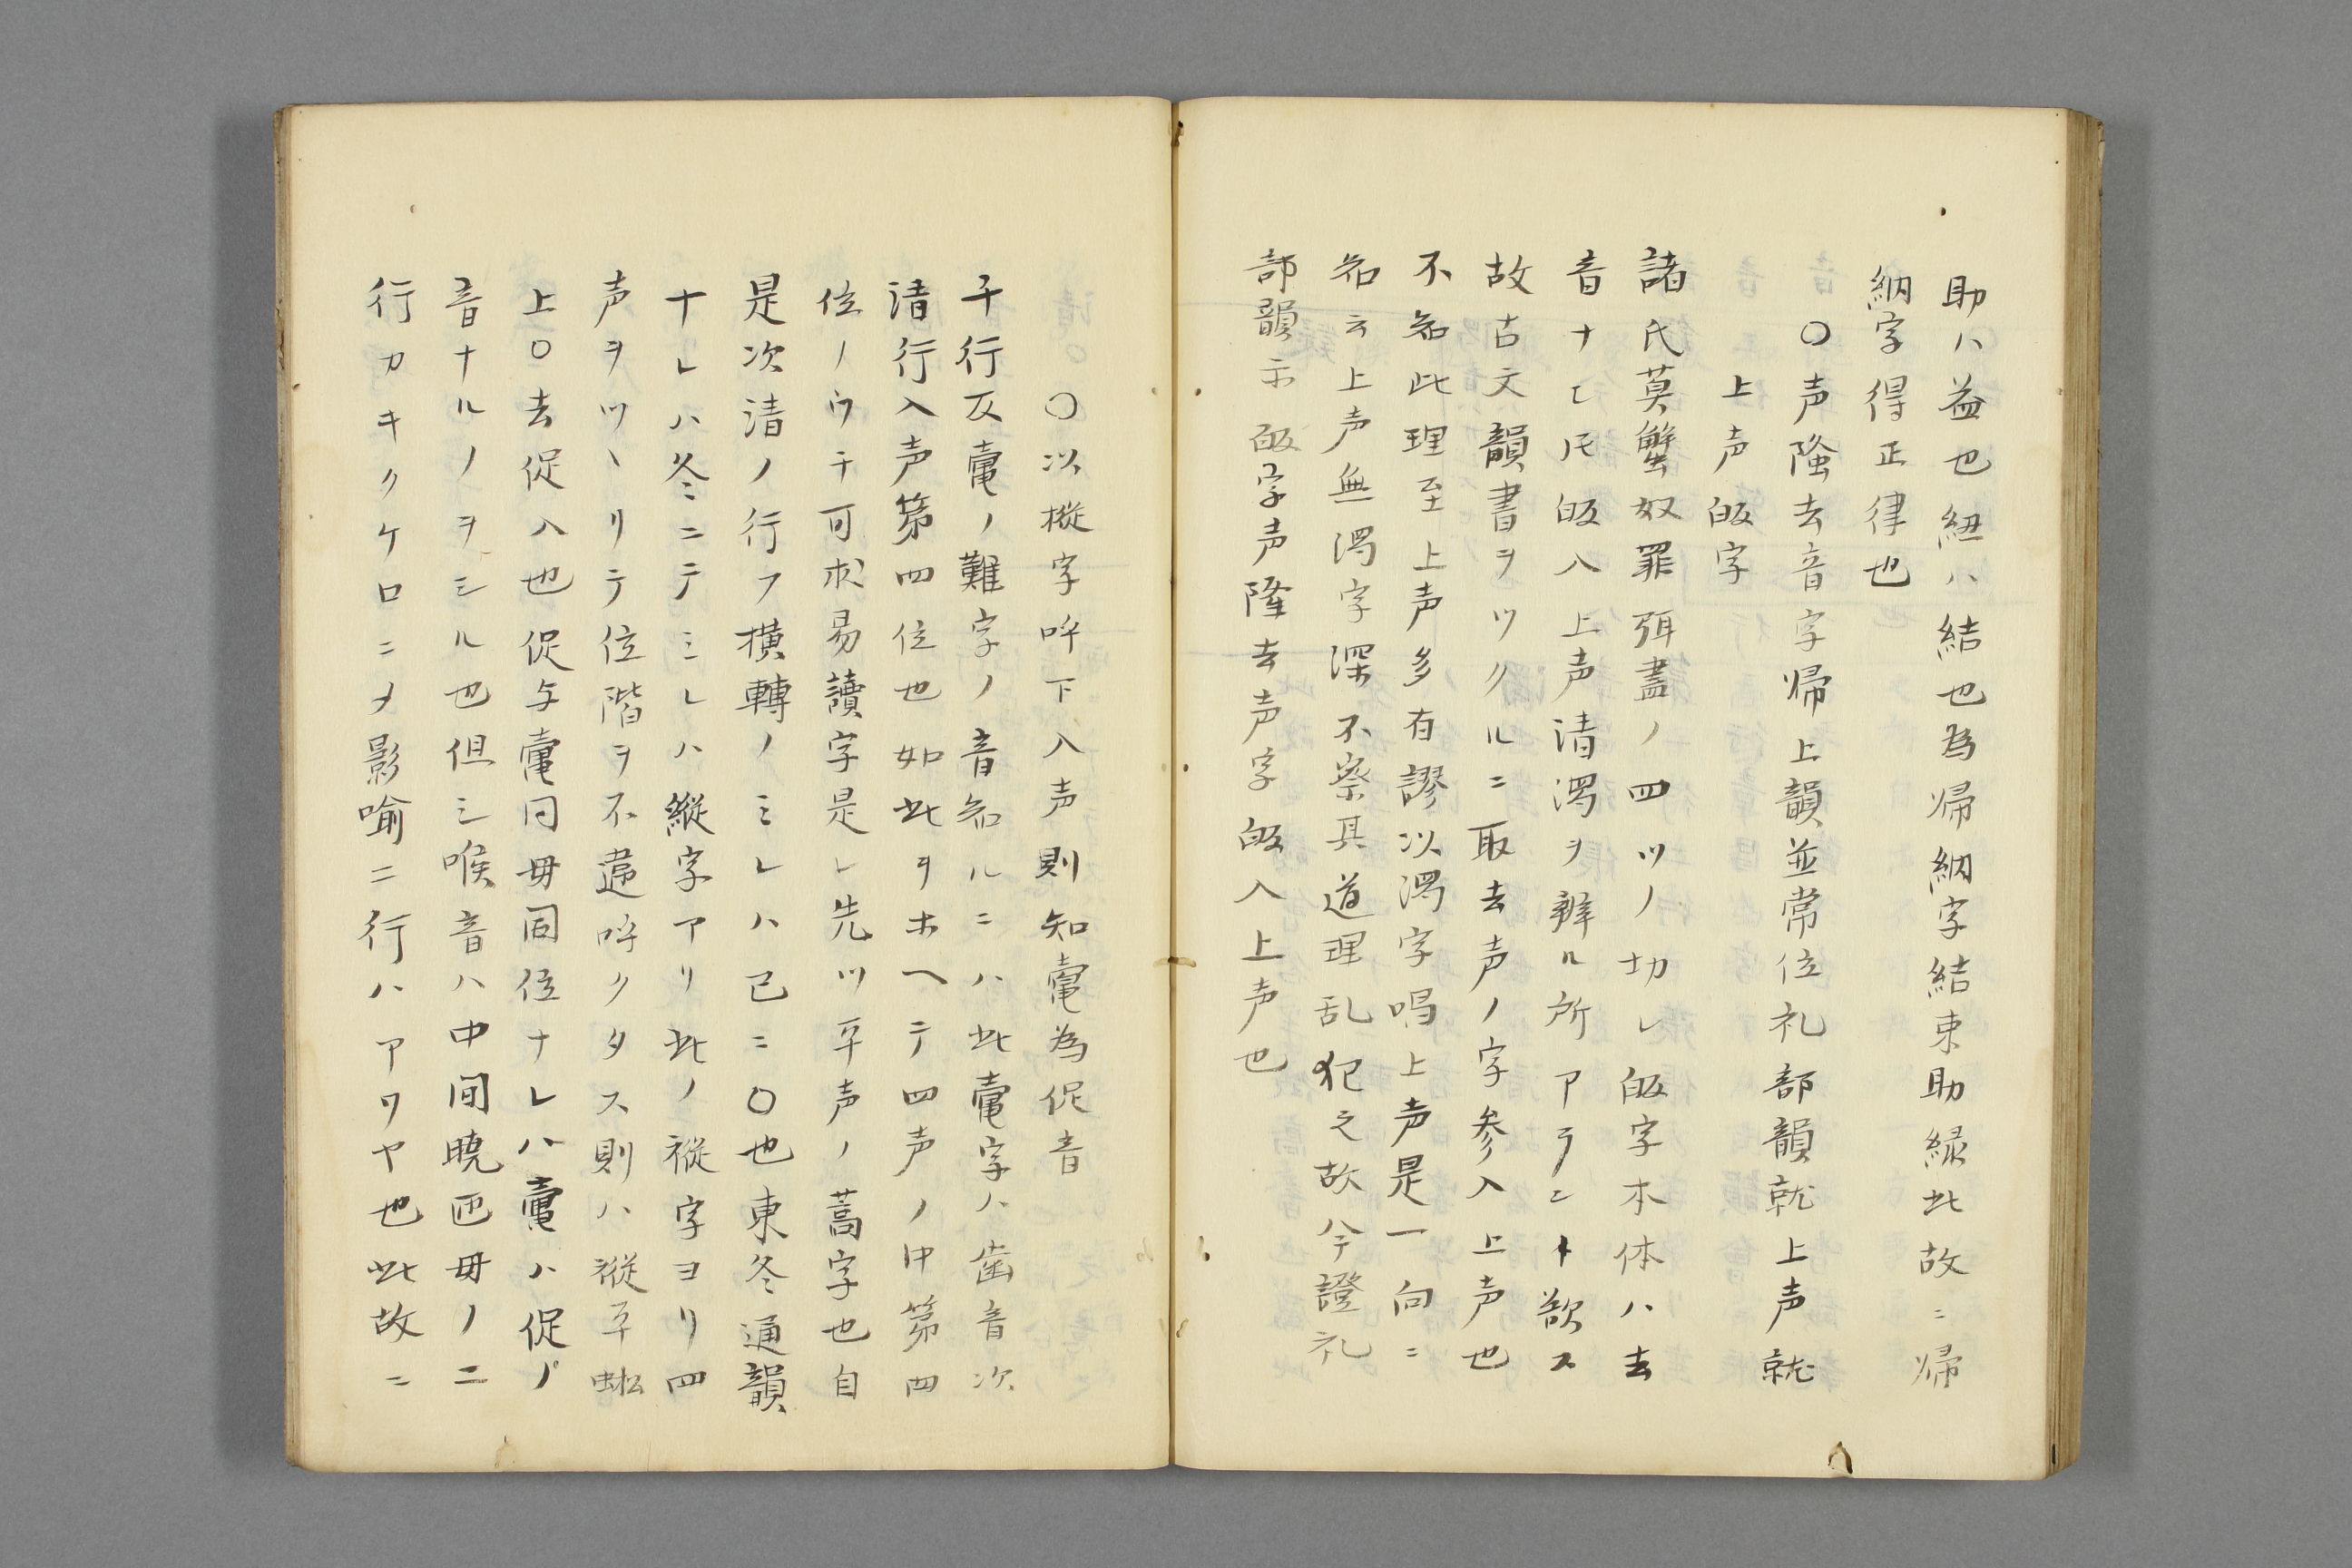 助ハ益也紐ハ結也為帰納字結束助緑此故ニ帰
納字得正律也
〇声隆去音字帰上韻並常位礼部韻就上声就
上声皈字
諸氏莫蟹奴罪弭盡ノ四ツノ切レ皈字本体ハ去
音ナレ𪜈皈入上声清濁ヲ辨ル所アラント欲ス
故古文韻書ヲツクルニ取去声ノ字参入上声也
不知此理至上声多有謬以濁字唱上声是一向ニ
知云上声無濁字深不察其道理乱犯之故今證礼
部韻示皈字声隆去声字皈入上声也
〇以樅字吽下入声則知𪔣為促音
千行仄𪔣ノ難字ノ音知ルニハ此𪔣字ハ歯音次
清行入声第四位也如此ヲホヘテ四声ノ中第四
位ノウチ可求易讀字是レ先ツ平声ノ蒿字也自
是次清ノ行フ横轉ノミレハ已ニ〇也東冬通韻
ナレハ冬ニテミレハ縱字アリ此ノ樅字ヨリ四
声ヲツヽリテ位階ヲ不違吽クタス則ハ樅平蜙
上〇去促入也促与𪔣同毋同位ナレハ𪔣ハ促ノ
音ナルノヲシル也但シ喉音ハ中間曉匣毋ノ二
行カキクケロニメ影喻二行ハアワヤ也此故ニ